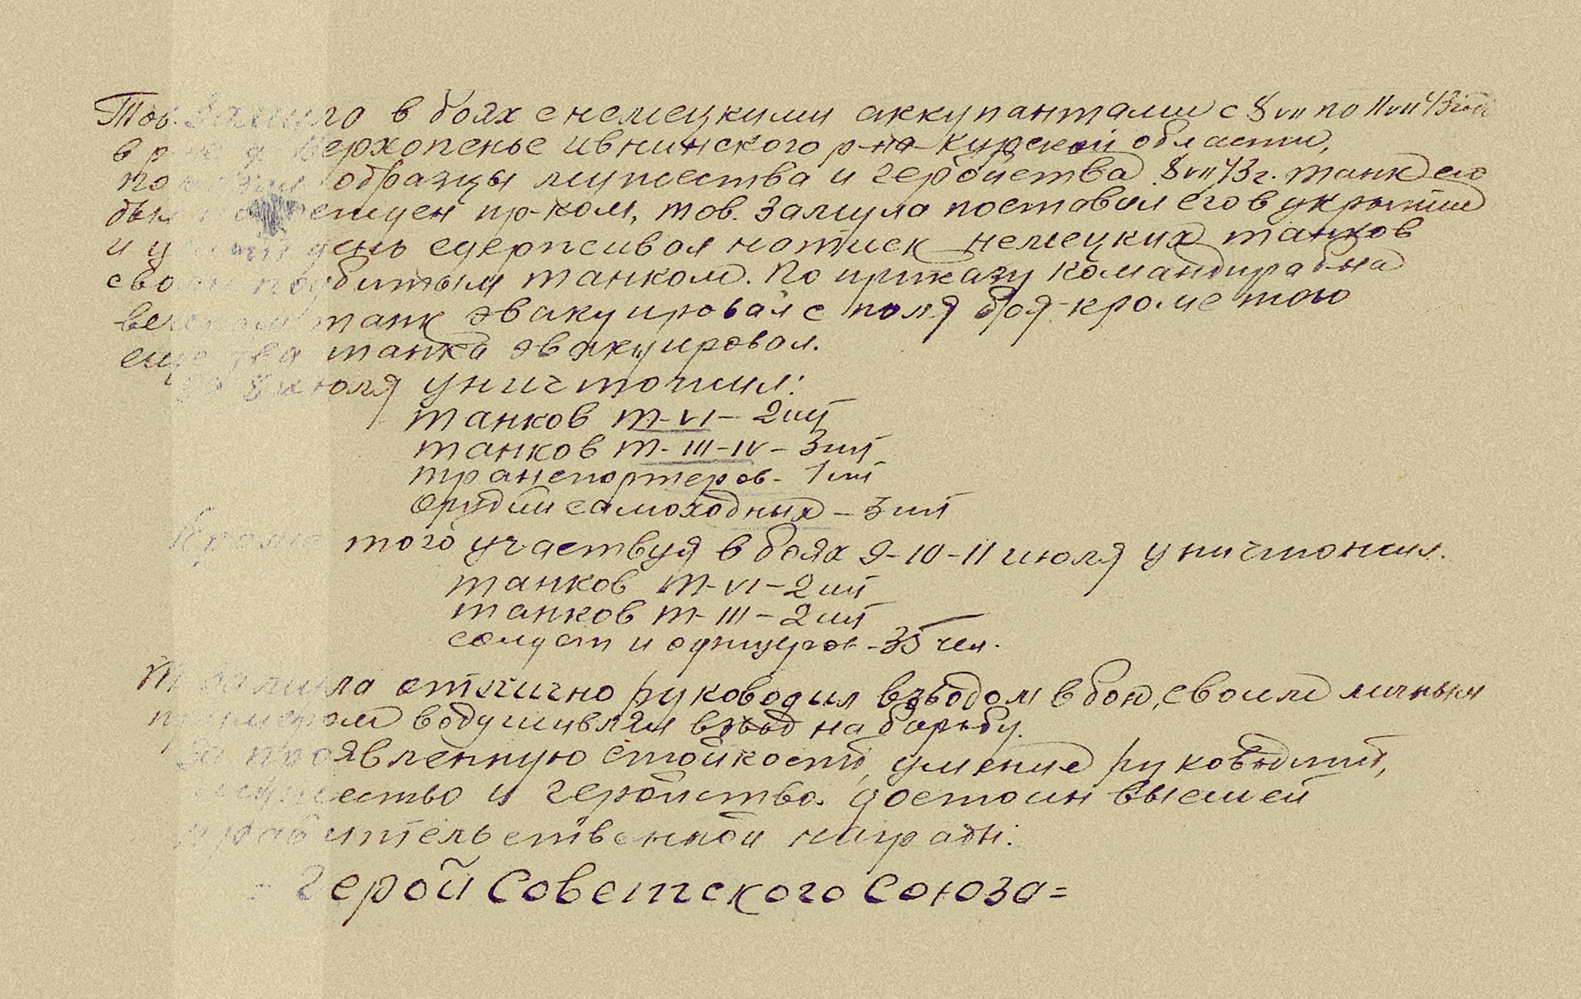 Тов. Замула в боях с немецкими аккупантами с 8 VII по 11 VII 43 года
в р-не д. Верхопенье Ивнинского р-на Курской области,
показал образцы мужества и геройства 8 VII 43 г. танк его
был поврежден пр-ком, тов. Замула поставил его в укрытие
и целый день сдерживал натиск немецких танков
своим подбитым танком. По приказу командира б-на
вечером танк эвакуировал с поля боя кроме того
еще два танка эвакуировал.
За 8 июля уничтожил:
танков Т-VI – 2 шт
танков Т-III-IV – 3 шт
транспортеров – 1 шт
Орудий самоходных – 3 шт
Кроме того участвуя в боях 9-10-11 июля уничтожил.
танков Т-VI – 2 шт
танков Т-III – 2 шт
солдат и офицеров – 35 чел.
Т. Замула отлично руководил взводом в бою, своим личным
примером водушивлял взвод на борьбу.
За проявленную стойкость, умение руководить,
мужество и геройство достоин высшей
правительственной награды:
= Герой Советского Союза =